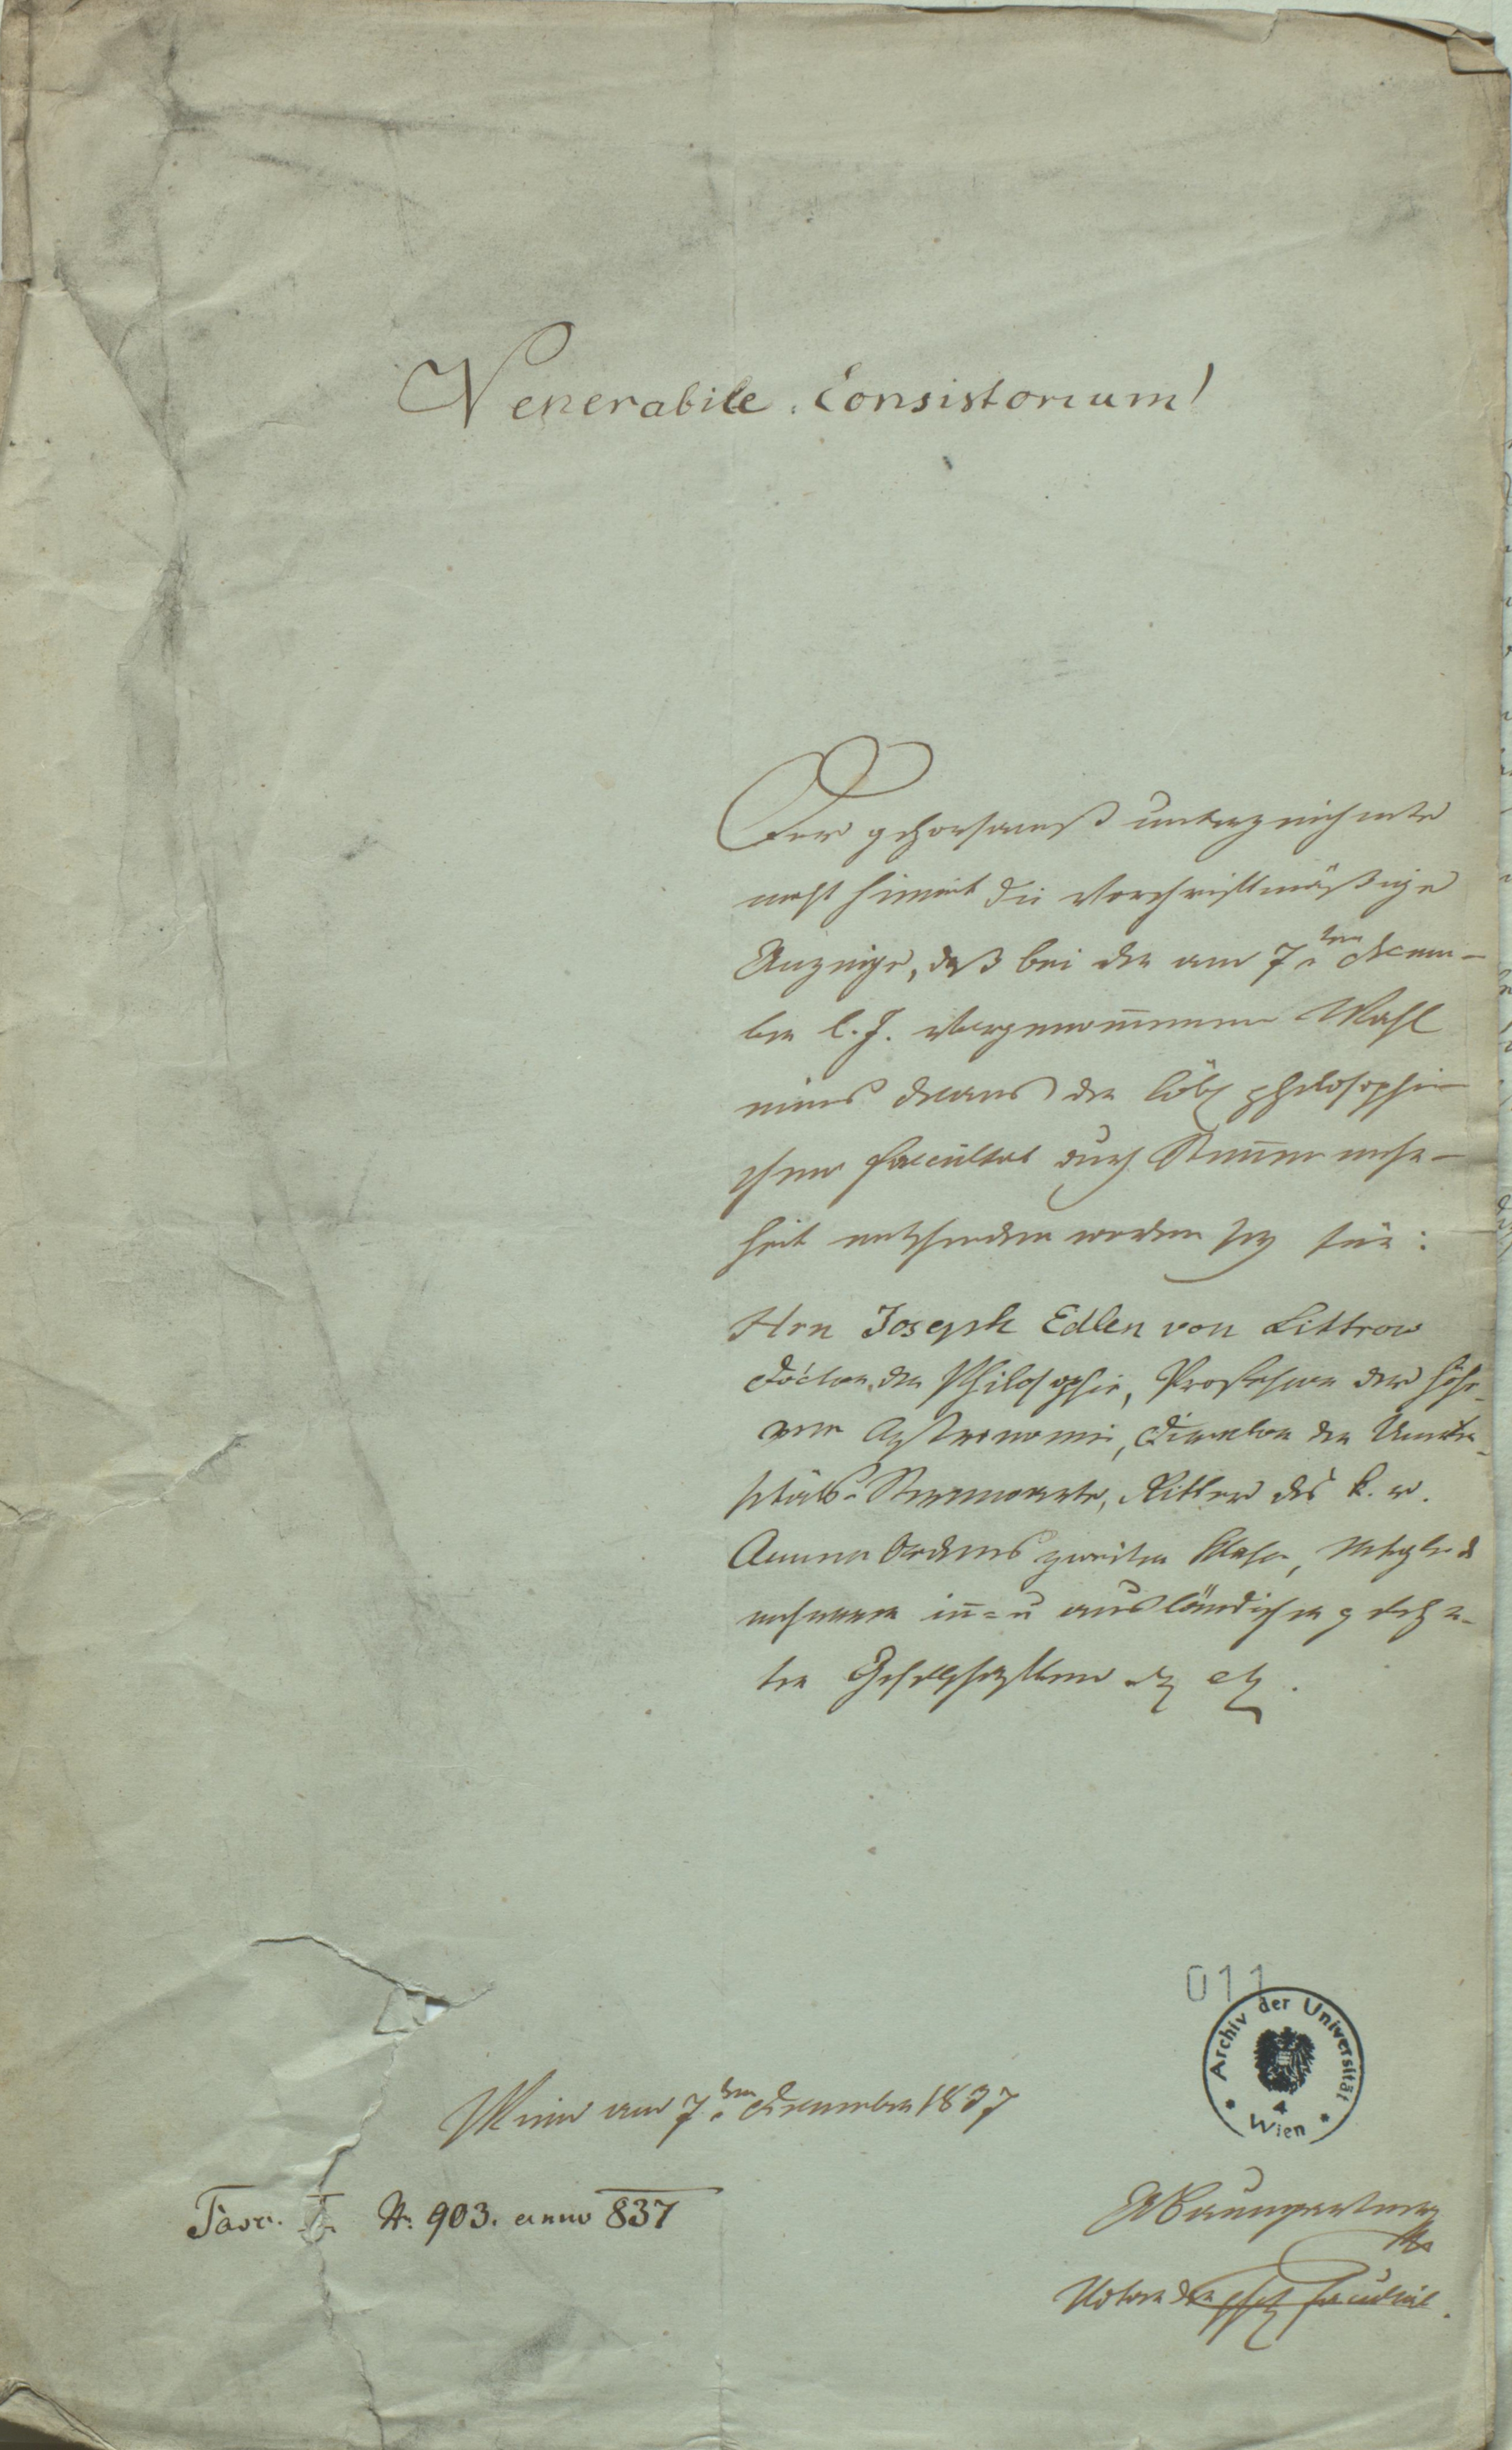 Venerabile Consistorium!
Der gehorsamst unterzeichnete
macht hiemit die vorschriftmäßige
Anzeige, daß bei der am 7ten Decem-
ber l. J. vorgenom̅menen Wahl
eines Decans der löbl philosophi-
schen Facultät durch Stim̅enmehr-
heit entschieden worden sey für:
Hrn Joseph Edlen von Littrow
Doctor der Philosophie, Professor der höhe-
ren Astronomie, Director der Univer-
sitäts-Sternwarte, Ritter des k. r.
Annen Ordens zweiter Klasse, Mitglied
mehrerer in= u ausländischer gelehr-
ten Gesellschaften etz etz.
011
Archiv der Universität
Wien
Wien am 7ten December 1837
Baumgartner
Fasc. I N: 903. anno 837
Notar der phil Facultät.